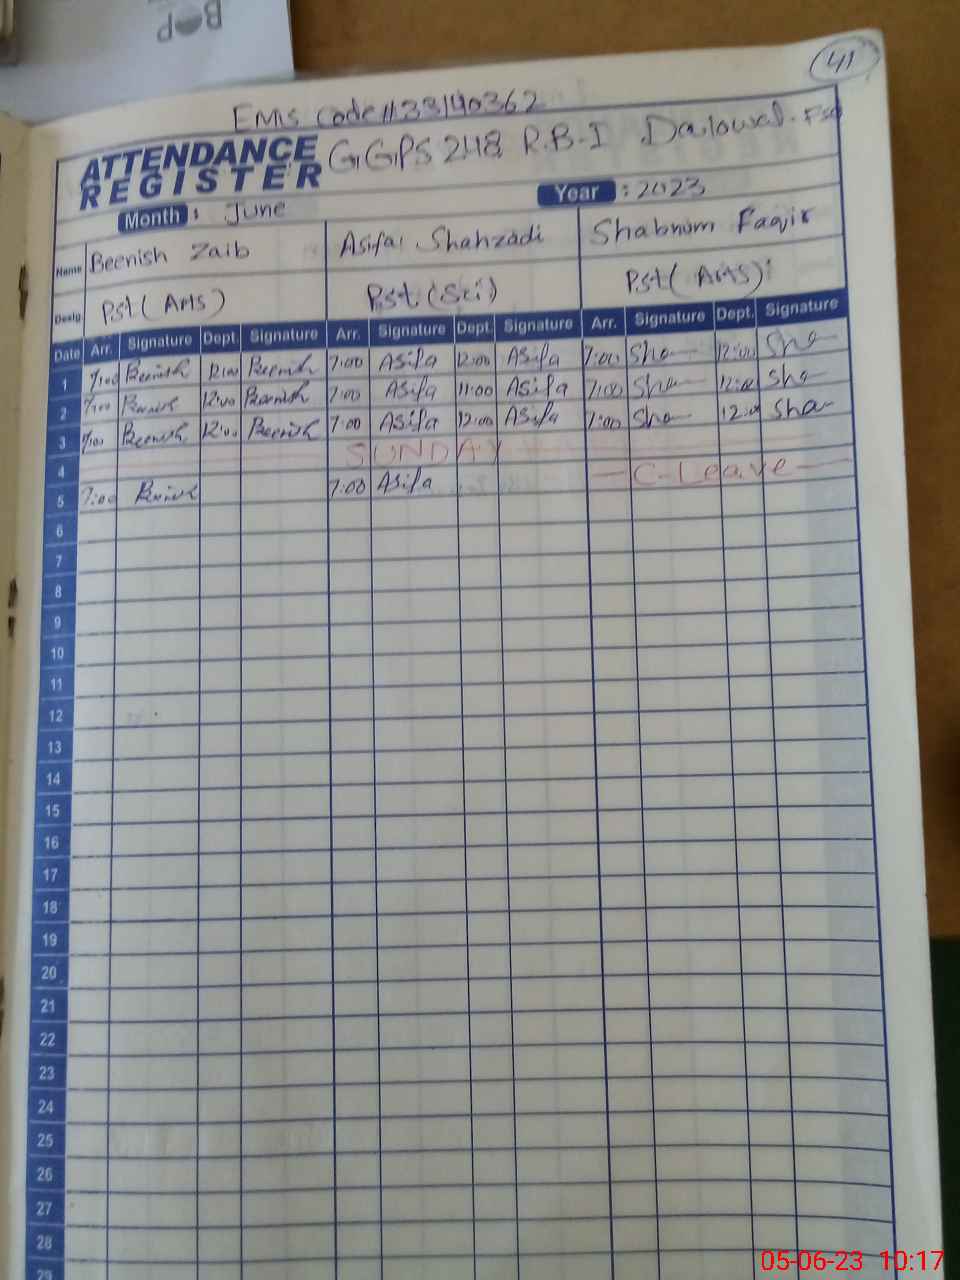 BOP
41
EMIS Code # 33140362
ATTENDANCE REGISTER
G.G.PS 248 R.B-I Dalowal. Fsd
Month : June Year : 2023
Name Beenish Zaib Asifa Shahzadi Shabnum Faqir
Desig. Pst (Arts) Pst. (Sci) Pst (Arts)
Date Arr. Signature Dept. Signature Arr. Signature Dept. Signature Arr. Signature Dept. Signature
1 7:00 Beenish 12:00 Beenish 7:00 Asifa 12:00 Asifa 7:00 Sha 12:00 Sha
2 7:00 Beenish 12:00 Beenish 7:00 Asifa 11:00 Asifa 7:00 Sha 12:00 Sha
3 7:00 Beenish 12:00 Beenish 7:00 Asifa 12:00 Asifa 7:00 Sha 12:00 Sha
4 SUNDAY
5 7:00 Beenish 7:00 Asifa C-Leave
6
7
8
9
10
11
12
13
14
15
16
17
18
19
20
21
22
23
24
25
26
27
28
29
05-06-23 10:17